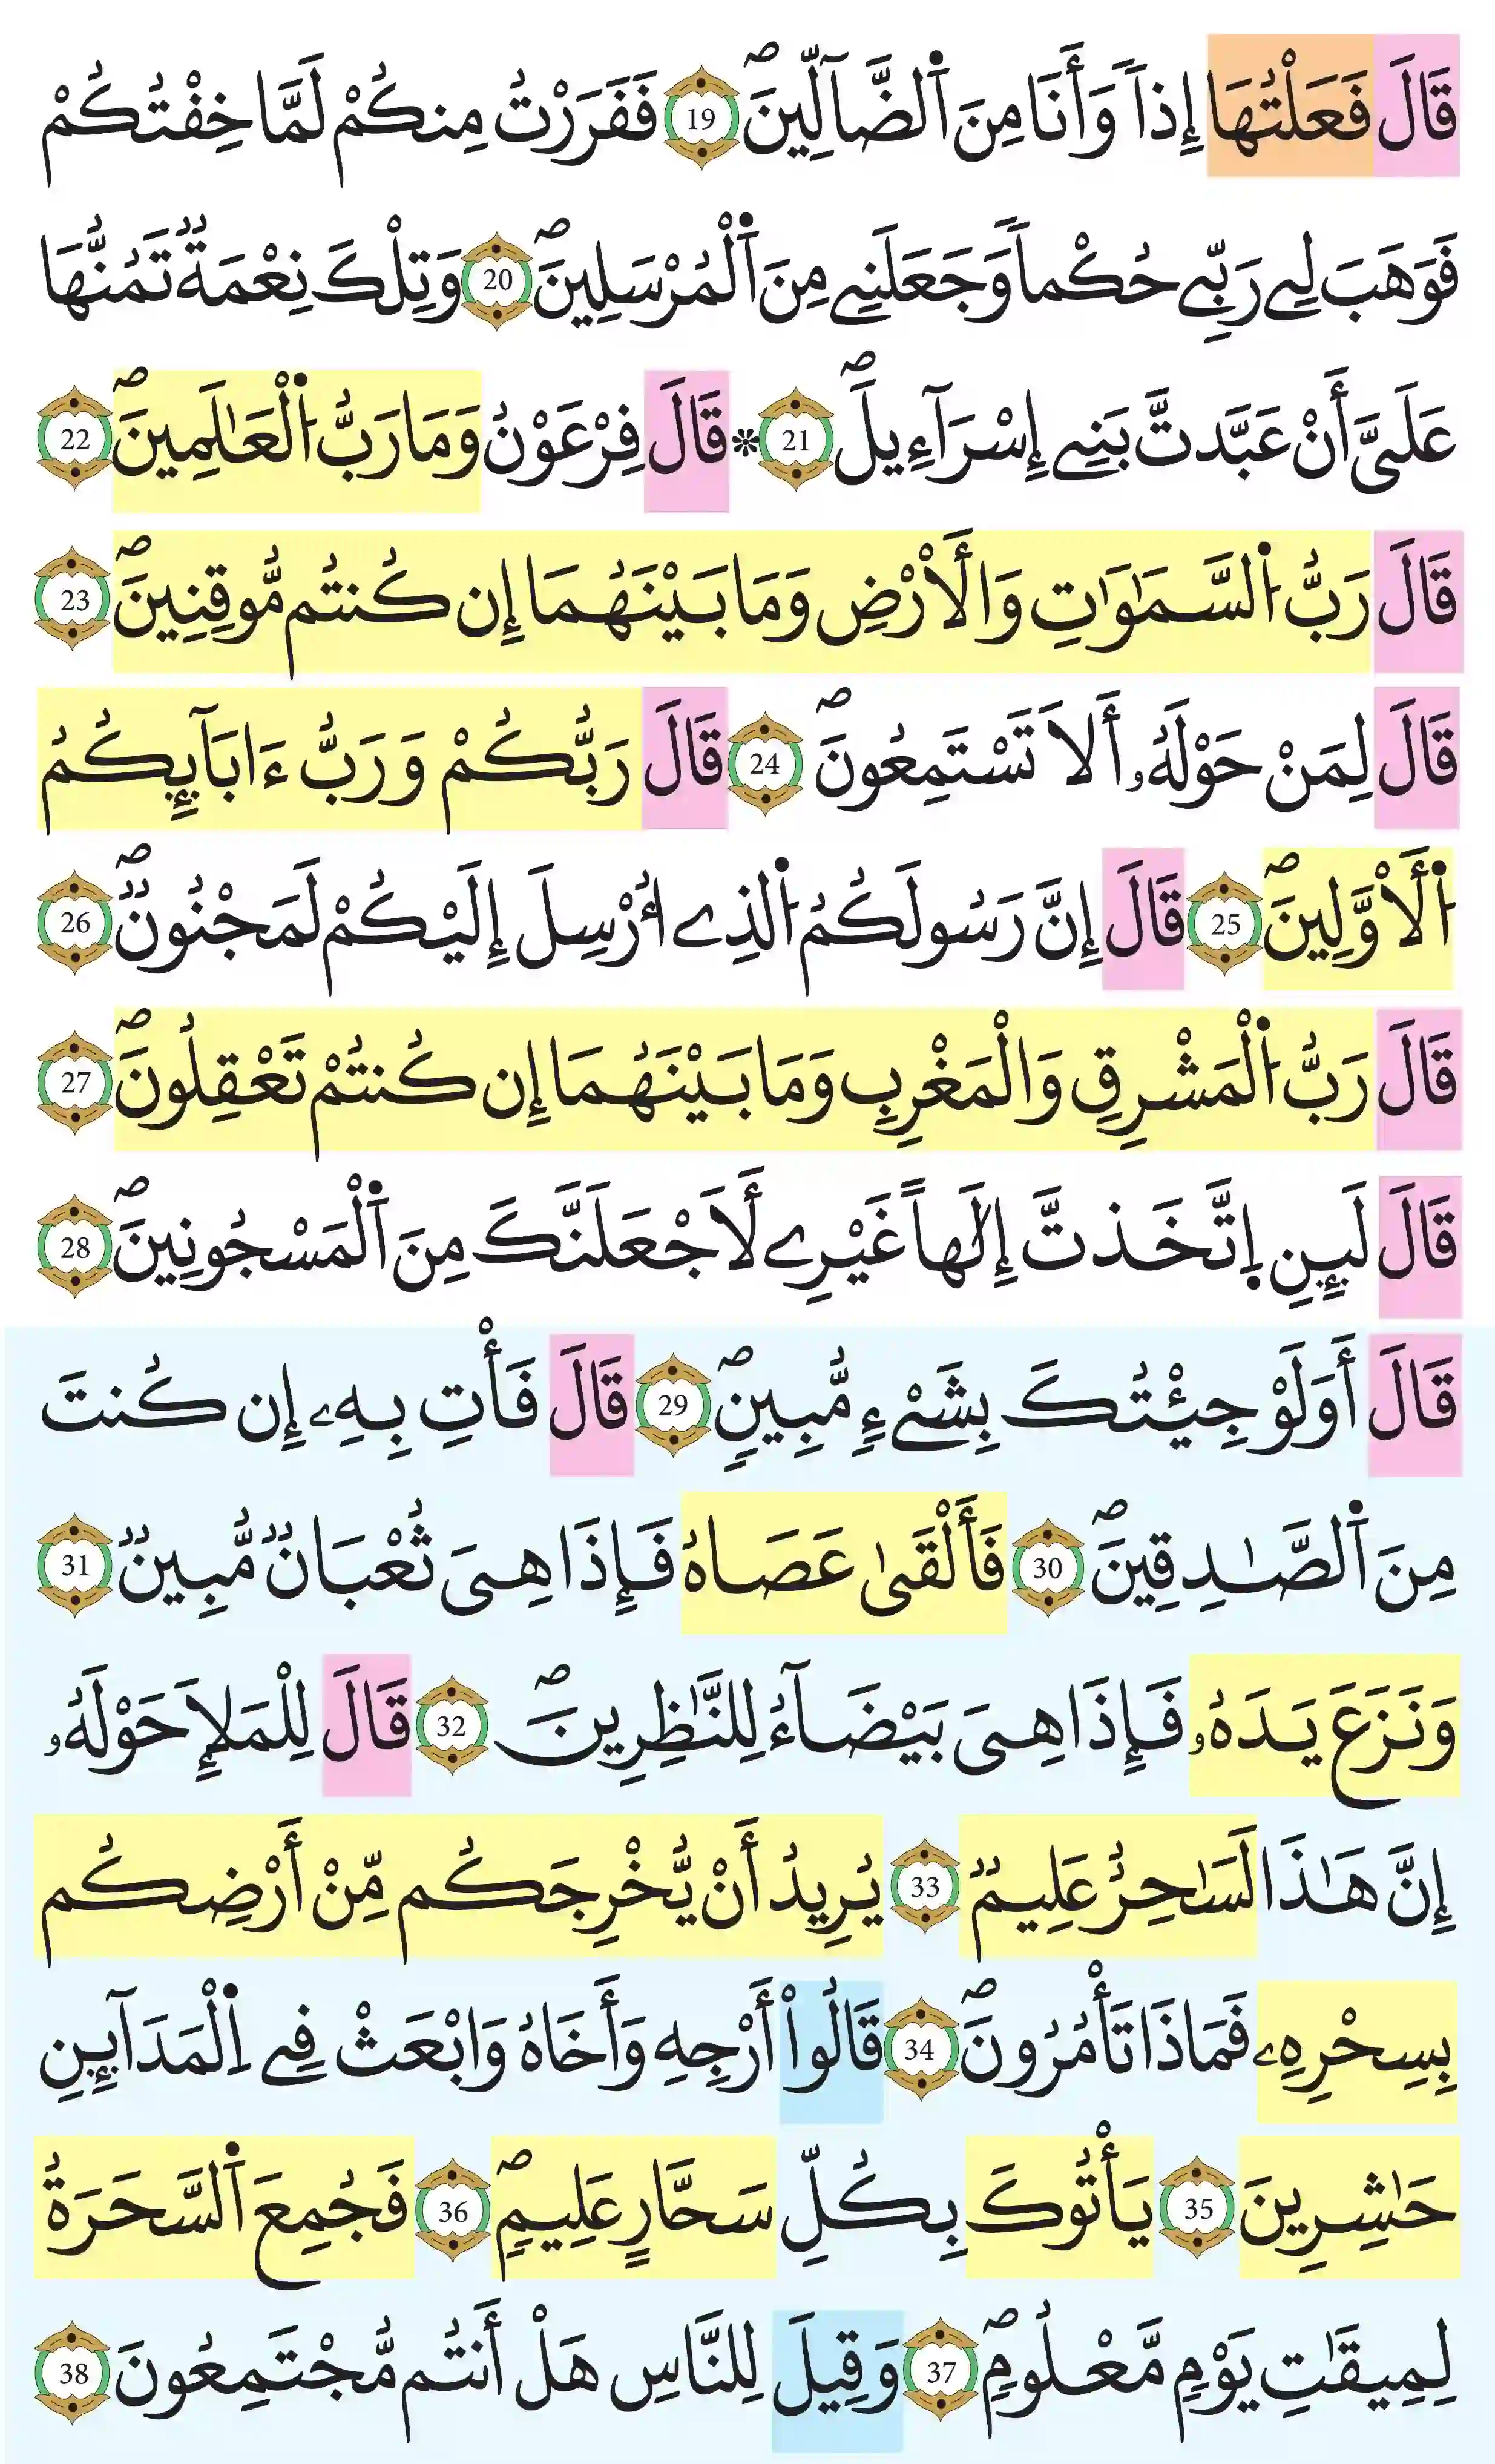 قَالَ فَعَلْتُهَا إِذاٗ وَأَنَا مِنَ اَ۬لضَّآلِّينَۖ 19 فَفَرَرْتُ مِنكُمْ لَمَّا خِفْتُكُمْ
فَوَهَبَ لِے رَبِّے حُكْماٗ وَجَعَلَنِے مِنَ اَ۬لْمُرْسَلِينَۖ 20 وَتِلْكَ نِعْمَةٞ تَمُنُّهَا
عَلَيَّ أَنْ عَبَّدتَّ بَنِے إِسْرَآءِيلَۖ 21 ۞ قَالَ فِرْعَوْنُ وَمَا رَبُّ اُ۬لْعَٰلَمِينَۖ 22
قَالَ رَبُّ اُ۬لسَّمَٰوَٰتِ وَالَارْضِ وَمَا بَيْنَهُمَا إِن كُنتُم مُّوقِنِينَۖ 23
قَالَ لِمَنْ حَوْلَهُۥ أَلَا تَسْتَمِعُونَۖ 24 قَالَ رَبُّكُمْ وَرَبُّ ءَابَآئِكُمُ
اُ۬لَاوَّلِينَۖ 25 قَالَ إِنَّ رَسُولَكُمُ اُ۬لذِے أُرْسِلَ إِلَيْكُمْ لَمَجْنُونٞۖ 26
قَالَ رَبُّ اُ۬لْمَشْرِقِ وَالْمَغْرِبِ وَمَا بَيْنَهُمَا إِن كُنتُمْ تَعْقِلُونَۖ 27
قَالَ لَئِنِ اِ۪تَّخَذتَّ إِلَٰهاً غَيْرِے لَأَجْعَلَنَّكَ مِنَ اَ۬لْمَسْجُونِينَۖ 28
قَالَ أَوَلَوْ جِئْتُكَ بِشَيْءٖ مُّبِينٖۖ 29 قَالَ فَأْتِ بِهِۦ إِن كُنتَ
مِنَ اَ۬لصَّٰدِقِينَۖ 30 فَأَلْقَىٰ عَصَاهُ فَإِذَا هِيَ ثُعْبَانٞ مُّبِينٞ 31
وَنَزَعَ يَدَهُۥ فَإِذَا هِيَ بَيْضَآءُ لِلنَّٰظِرِينَۖ 32 قَالَ لِلْمَلَإِ حَوْلَهُۥ
إِنَّ هَٰذَا لَسَٰحِرٌ عَلِيمٞ 33 يُرِيدُ أَنْ يُّخْرِجَكُم مِّنْ أَرْضِكُم
بِسِحْرِهِۦ فَمَاذَا تَأْمُرُونَۖ 34 قَالُواْ أَرْجِهِ وَأَخَاهُ وَابْعَثْ فِے اِ۬لْمَدَآئِنِ
حَٰشِرِينَ 35 يَأْتُوكَ بِكُلِّ سَحَّارٍ عَلِيمٖۖ 36 فَجُمِعَ اَ۬لسَّحَرَةُ
لِمِيقَٰتِ يَوْمٖ مَّعْلُومٖۖ 37 وَقِيلَ لِلنَّاسِ هَلْ أَنتُم مُّجْتَمِعُونَ 38